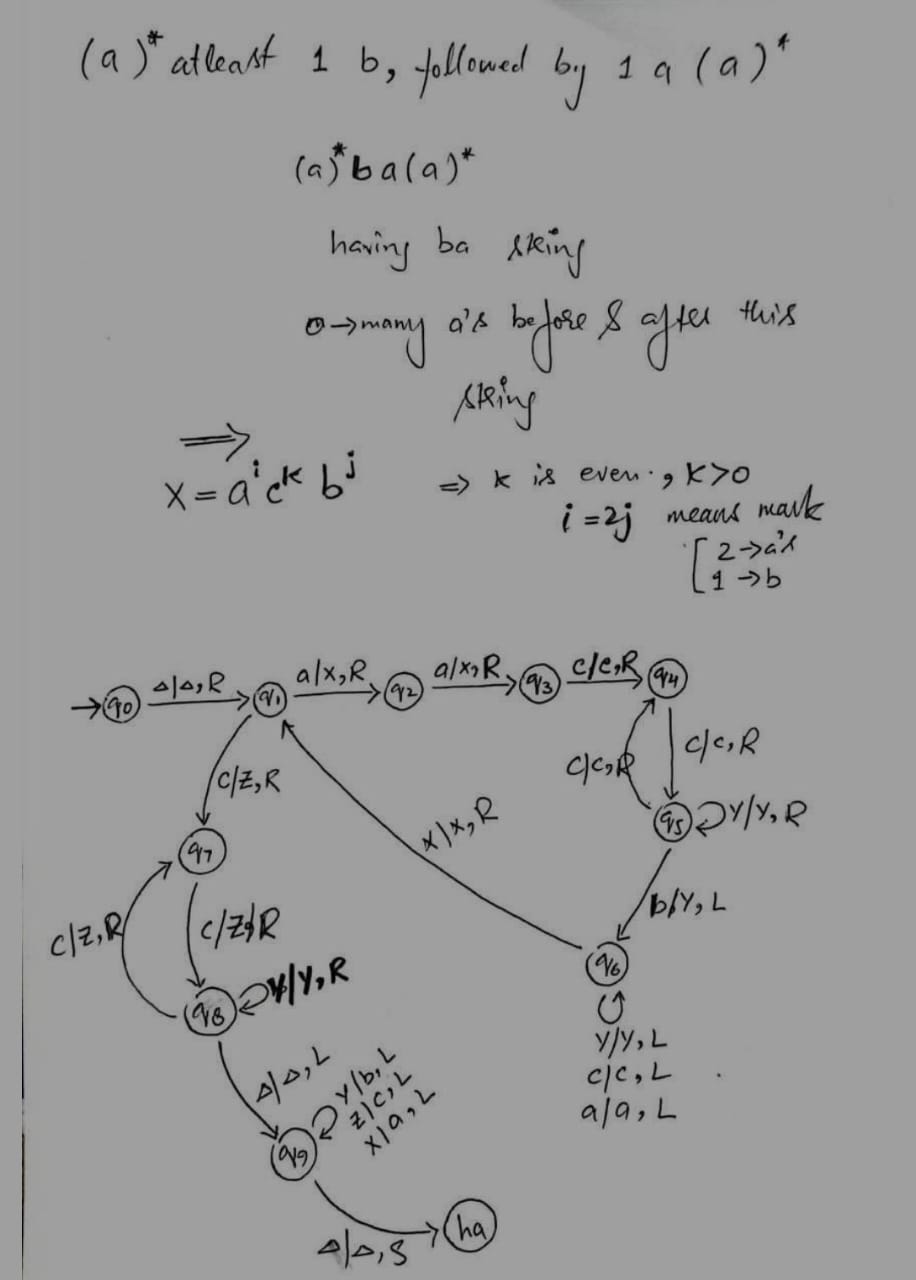 (a)* atleast 1 b, followed by 1 a (a)*
(a)* b a (a)*
having ba string
0→many a's before & after this
string
⟹
X = aⁱ cᵏ bʲ ⇒ k is even., k>0
i = 2j means mark
[ 2→a's
1→b
→ q0 Δ/Δ,R q1 a/x,R q2 a/x,R q3 c/c,R q4
c/c,R c/c,R
c/z,R
q5 Y/Y,R
x/x,R
q7
b/Y,L
c/z,R c/z,R
q6
q8 Y/Y,R
Y/Y,L
c/c,L
a/a,L
Δ/Δ,L
Y/b,L
z/c,L
x/a,L
q9
Δ/Δ,S ha